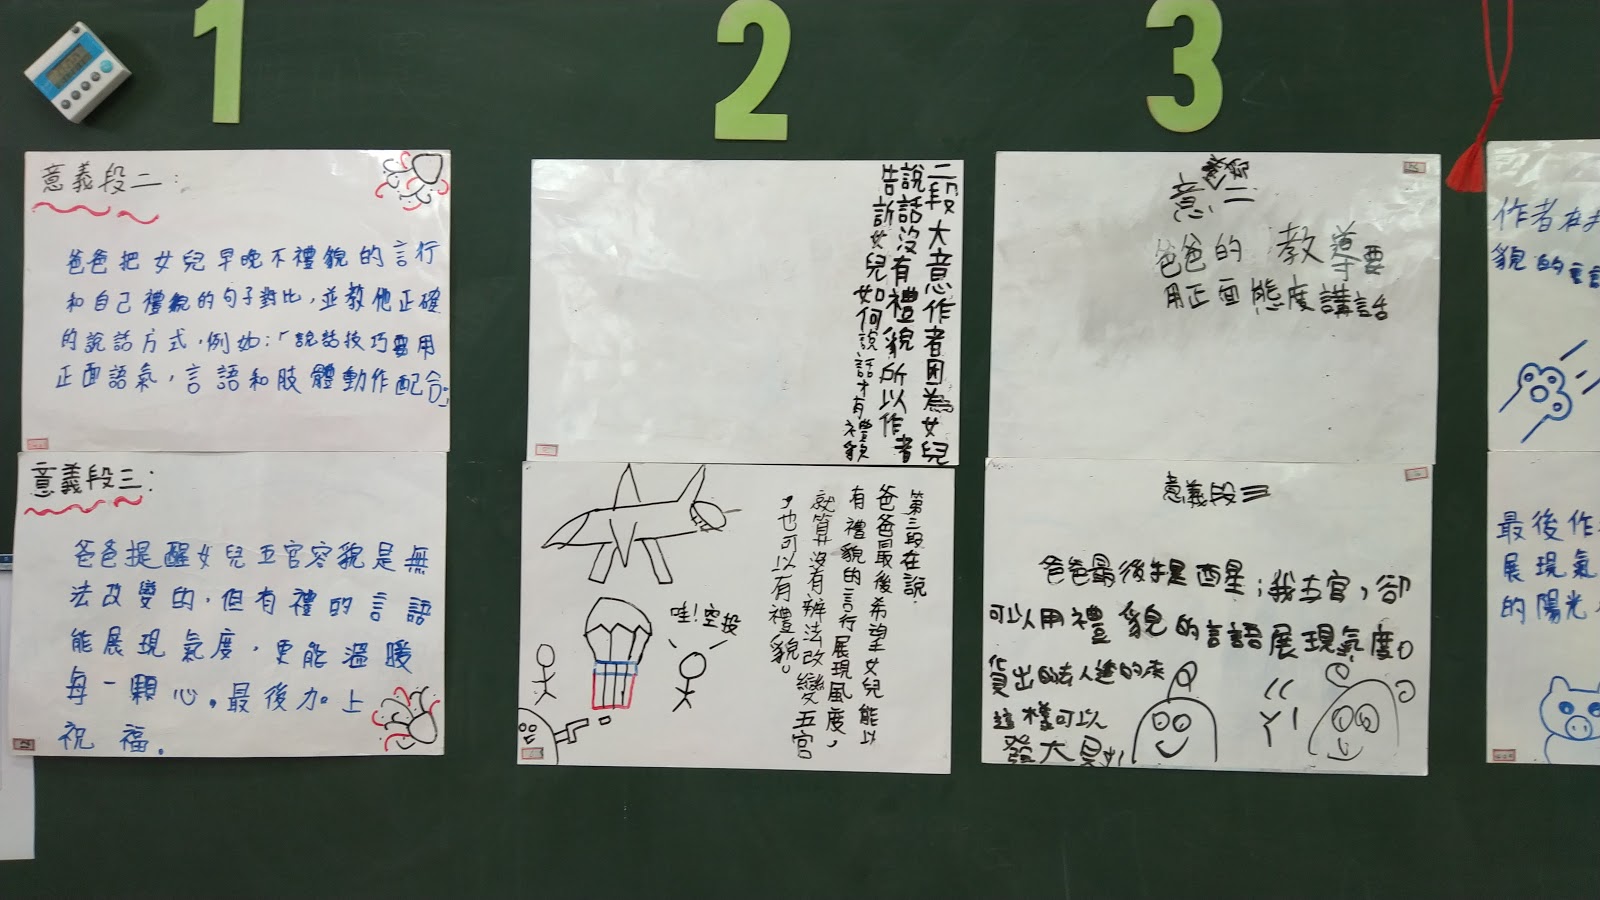 1
2
3
意義段二:
爸爸把女兒早晚不禮貌的言行
和自己禮貌的句子對比,並教他正確
的說話方式,例如:「說話技巧要用
正面語氣,言語和肢體動作配合」
意義段三:
爸爸提醒女兒五官容貌是無
法改變的,但有禮的言語
能展現氣度,更能溫暖
每一顆心。最後加上
祝福。
二段大意作者因為女兒
說話沒有禮貌所以作者
告訴女兒如何說話才有禮貌
第三段在說.
爸爸最後希望女兒能以
有禮貌的言行展現風度,
就算沒有辦法改變五官
,也可以有禮貌。
哇!空投
意義段二
爸爸的教導要
用正面態度講話
意義段三
爸爸最後 我五官,卻
可以用禮貌的言語展現氣度。
這樣可以
發大
作者在
貌的言
最後作
展現氣
的陽光